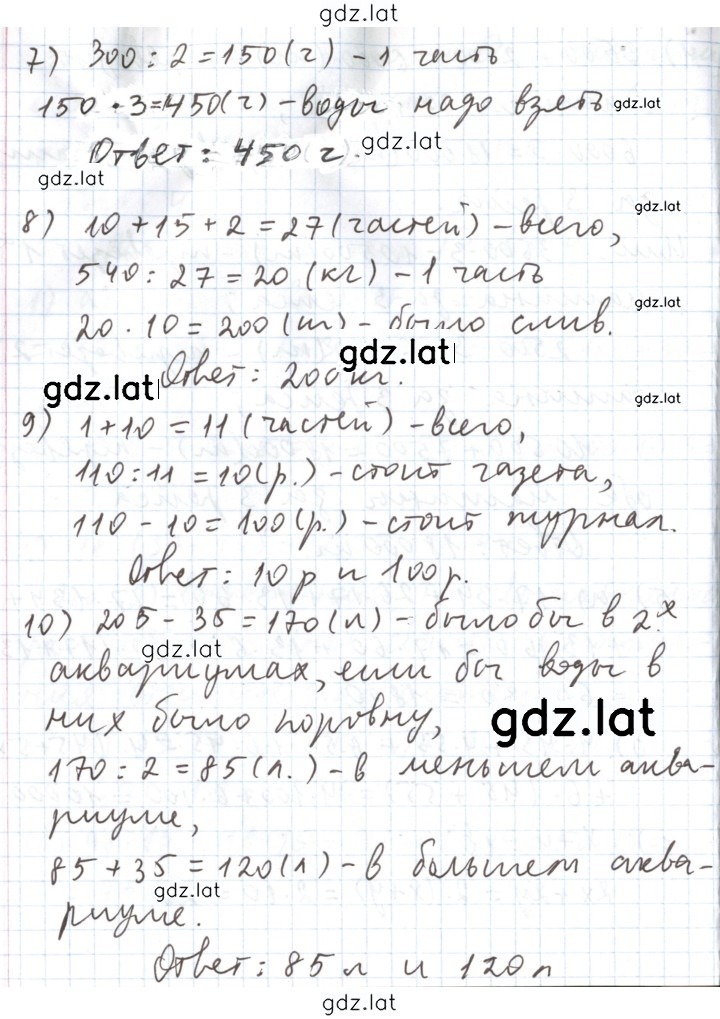 gdz.lat
7) 300 : 2 = 150 (г) - 1 часть
150 · 3 = 450 (г) - воды надо взять gdz.lat
Ответ: 450 г. gdz.lat
gdz.lat
8) 10 + 15 + 2 = 27 (частей) - всего, gdz.lat
540 : 27 = 20 (кг) - 1 часть
20 · 10 = 200 (кг) - было слив. gdz.lat
gdz.lat Ответ: 200 кг. gdz.lat gdz.lat
9) 1 + 10 = 11 (частей) - всего,
110 : 11 = 10 (р.) - стоит газета,
110 - 10 = 100 (р.) - стоит журнал.
Ответ: 10 р и 100 р.
10) 205 - 35 = 170 (л) - было бы в 2х
gdz.lat
аквариумах, если бы воды в
них было поровну, gdz.lat
170 : 2 = 85 (л.) - в меньшем аква-
риуме,
85 + 35 = 120 (л) - в большем аква-
gdz.lat
риуме.
Ответ: 85 л и 120 л
gdz.lat